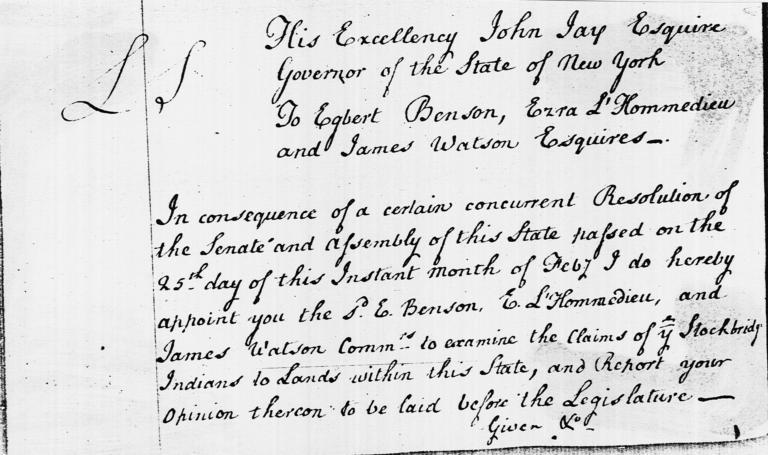 L S
His Excellency John Jay Esquire
Governor of the State of New York
To Egbert Benson, Ezra L'Hommedieu
and James Watson Esquires —.
In consequence of a certain concurrent Resolution of
the Senate and Assembly of this State passed on the
25th day of this Instant month of Feby I do hereby
appoint you the sd. E. Benson, E. L'Hommedieu, and
James Watson Commrs to examine the Claims of ye Stockbridge
Indians to Lands within this State, and Report your
Opinion thereon to be laid before the Legislature —
Given &c